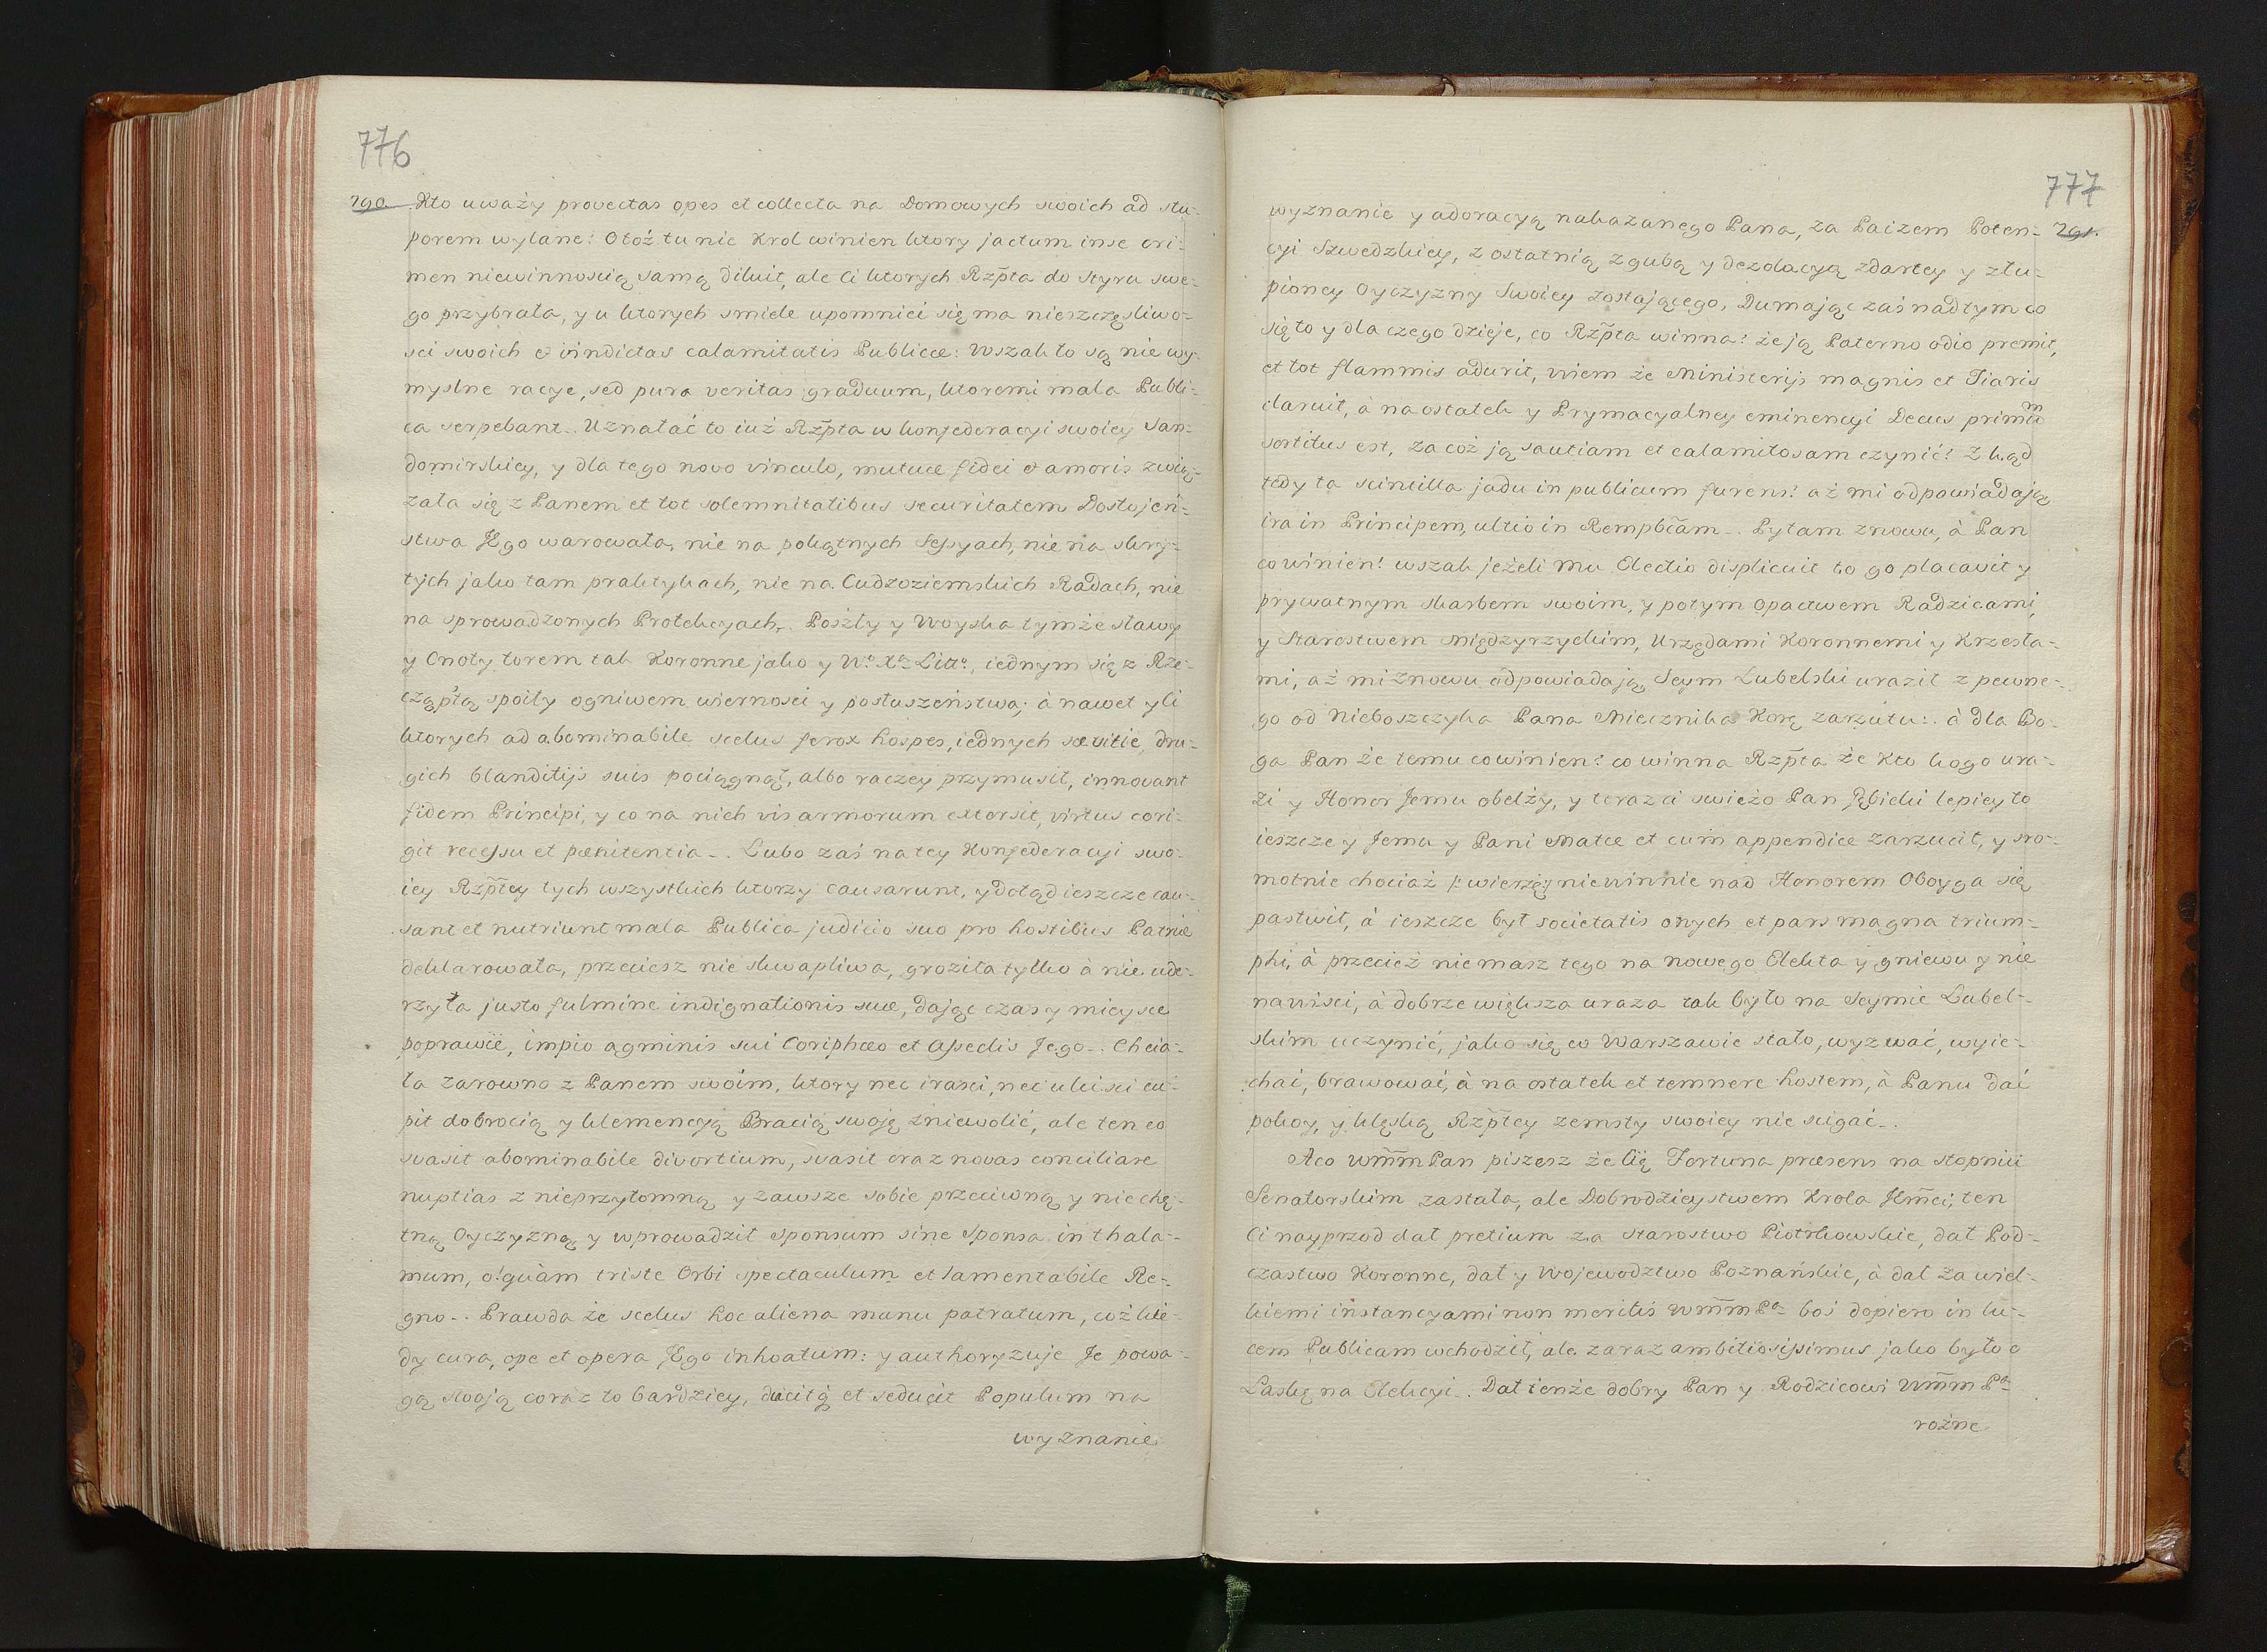 776
790. Kto uważy provectas opes et collecta na Domowych swoich ad stu-
porem wylane: Otoż tu nie Krol winien ktory jactum in se cri-
men niewinnoscią samą diluit, ale Ci ktorych Rzpta do styru swe-
go przybrała, y u ktorych smiele upomnieć się ma nieszczęsliwo-
sci swoich & vindictas calamitatis Publicæ: Wszak to są nie wy-
myslne racye, sed pura veritas graduum, ktoremi mala Publi-
ca serpebant.. Uznałać to iuż Rzpta w konfederacyi swoiey San-
domirskiey, y dla tego novo vinculo, mutuæ fidei & amoris zwią-
zała się z Panem et tot solemnitatibus securitatem Dostojeń-
stwa Jego warowała, nie na pokątnych Sessyach, nie na skry-
tych jako tam praktykach, nie na Cudzoziemskich Radach, nie
na sprowadzonych Protekcyach.. Poszły y Woyska tymże sławy
y Cnoty torem tak Koronne jako y Wo Xa Litto, iednym się z Rze-
cząptą spoiły ogniwem wiernosci y posłuszeństwa; à nawet y ci
ktorych ad abominabile scelus ferox hospes, iednych sævitie, dru-
gich blanditijs suis pociągnął, albo raczey przymusił, innovant
fidem Principi, y co na nich vis armorum extorsit, virtus cori-
git recessu et pænitentia.. Lubo zaś na tey Konfederacyi swo-
iey Rzptey tych wszystkich ktorzy causarunt, y dotąd ieszcze cau-
sant et nutriunt mala Publica judicio suo pro hostibus Patriæ
deklarowała, przeciesz nie skwapliwa, groziła tylko à nie ude-
rzyła justo fulmine indignationis suæ, dając czas y mieysce
poprawie, impio agminis sui Coriphæo et Asseclis Jego.. Chcia-
ła zarowno z Panem swoim, ktory nec irasci, nec ulcisci cu-
pit dobrocią y klemencyą Bracią swoję zniewolić, ale ten co
svasit abominabile divortium, svasit oraz novas conciliare
nuptias z nieprzytomną y zawsze sobie przeciwną y niechę-
tną Oyczyzną y wprowadził sponsum sine Sponsa in thala-
mum, o! quàm triste Orbi spectaculum et lamentabile Re-
gno.. Prawda że scelus hoc aliena manu patratum, coż kie-
dy cura, ope et opera Jego inhoatum: y authoryzuje Je powa-
gą swoją coraz to bardziey, ducitq et seducit Populum na
wyznanie
777
791.
wyznanie y adoracyą nakazanego Pana, za Paizem Poten-
cyi Szwedzkiey, z ostatnią zgubą y dezolacyą zdartey y złu-
pioney Oyczyzny Swoiey zostającego, Dumając zaś nad tym co
się to y dla czego dzieje, co Rzpta winna? że ją Paterno odio premit,
et tot flammis adurit, wiem że Ministerijs magnis et Tiaris
claruit, à na ostatek y Prymacyalney eminencyi Decus primum
sortitus est, za coż ją sautiam et calamitosam czynić? Zkąd
tedy ta scintilla jadu in publicum furens? aż mi odpowiadają
ira in Principem, ultio in Rempblcam.. Pytam znowu, à Pan
co winien? wszak jeżeli mu Electio displicuit to go placavit y
prywatnym skarbem swoim, y potym Opactwem Radzicami,
y Starostwem Międzyrzyckim, Urzędami Koronnemi y Krzesła-
mi, aż mi znowu odpowiadają, Seym Lubelski uraził z pewne-
go od Nieboszczyka Pana Miecznika Korę zarzutu:. à dla Bo-
ga Pan że temu co winien? co winna Rzpta że kto kogo ura-
zi y Honor Jemu obelży, y teraz ci swieżo Pan Jębicki lepiey to
ieszcze y Jemu y Pani Matce et cum appendice zarzucił, y sro-
motnie chociaż /: wierzę:/ niewinnie nad Honorem Oboyga się
pastwił, à ieszcze był societatis onych et pars magna trium-
phi, à przecież nie masz tego na nowego Elekta y gniewu y nie
nawisci, à dobrze większa uraza tak było na Seymie Lubel-
skim uczynić, jako się w Warszawie stało, wyzwać, wyie-
chać, brawować, à na ostatek et temnere hostem, à Panu dać
pokoy, y klęską Rzptey zemsty swoiey nie scigać..
A co Wmm Pan piszesz że Cię Fortuna præsens na stopniu
Senatorskim zastała, ale Dobrodzieystwem Krola Jmci, ten
Ci nayprzod dał pretium za Starostwo Piotrkowskie, dał Pod-
czastwo Koronne, dał y Wojewodztwo Poznańskie, à dał za wiel-
kiemi instancyami non meritis Wmm Pa boś dopiero in lu-
cem Publicam wchodził, ale zaraz ambitiosissimus jako było o
Laskę na Elekcyi.. Dał tenże dobry Pan y Rodzicowi Wmm Pa
rożne